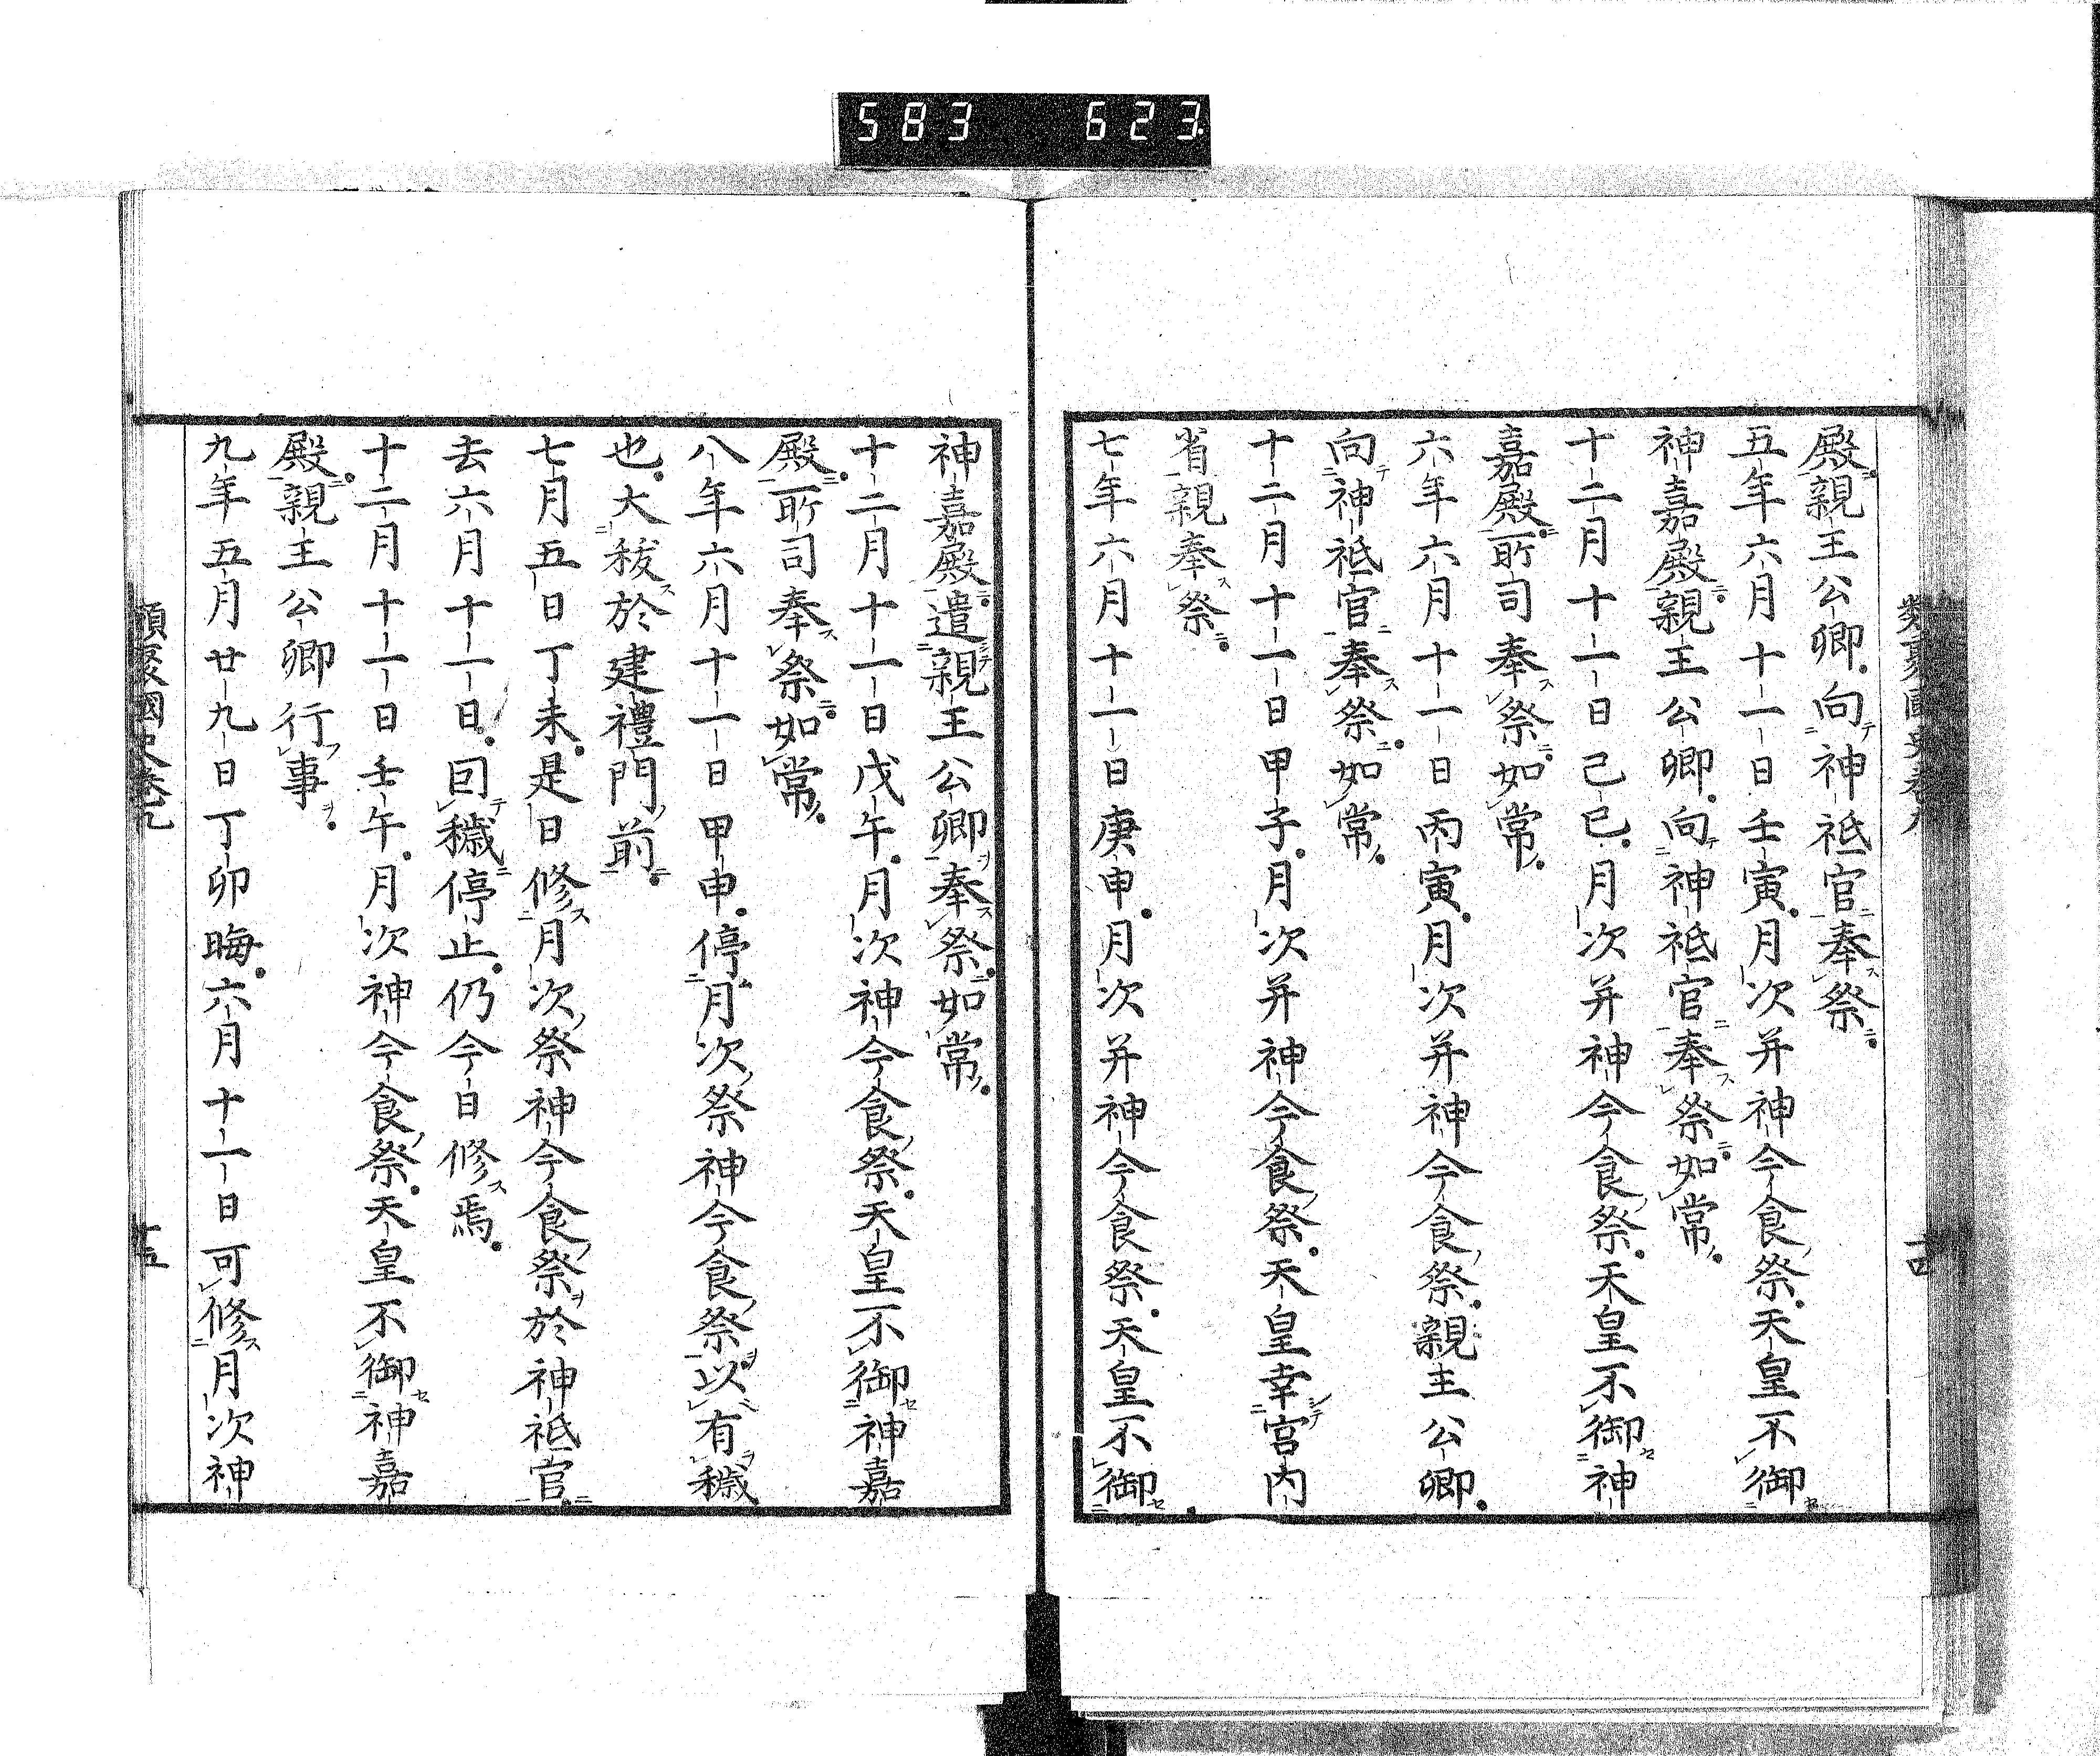 583 623
類聚國史卷九
十四
殿親王公卿向神祗官奉祭
五年六月十一日壬寅月次并神今食祭天皇不御
神嘉殿親王公卿向神祗官奉祭如常
十二月十一日己巳月次并神今食祭天皇不御神
嘉殿所司奉祭如常
六年六月十一日丙寅月次并神今食祭親王公卿
向神祗官奉祭如常
十二月十一日甲子月次并神今食祭天皇幸宮内
省親奉祭
七年六月十一日庚申月次并神今食祭天皇不御
神嘉殿遣親王公卿奉祭如常
十二月十一日戊午月次神今食祭天皇不御神嘉
殿所司奉祭如常
八年六月十一日甲申停月次祭神今食祭以有穢
也大秡於建禮門前
七月五日丁未是日修月次祭神今食祭於神祗官
去六月十一日囙穢停止仍今日修焉
十二月十一日壬午月次神今食祭天皇不御神嘉
殿親王公卿行事
九年五月廿九日丁卯晦六月十一日可修月次神
類聚國史卷九
十五